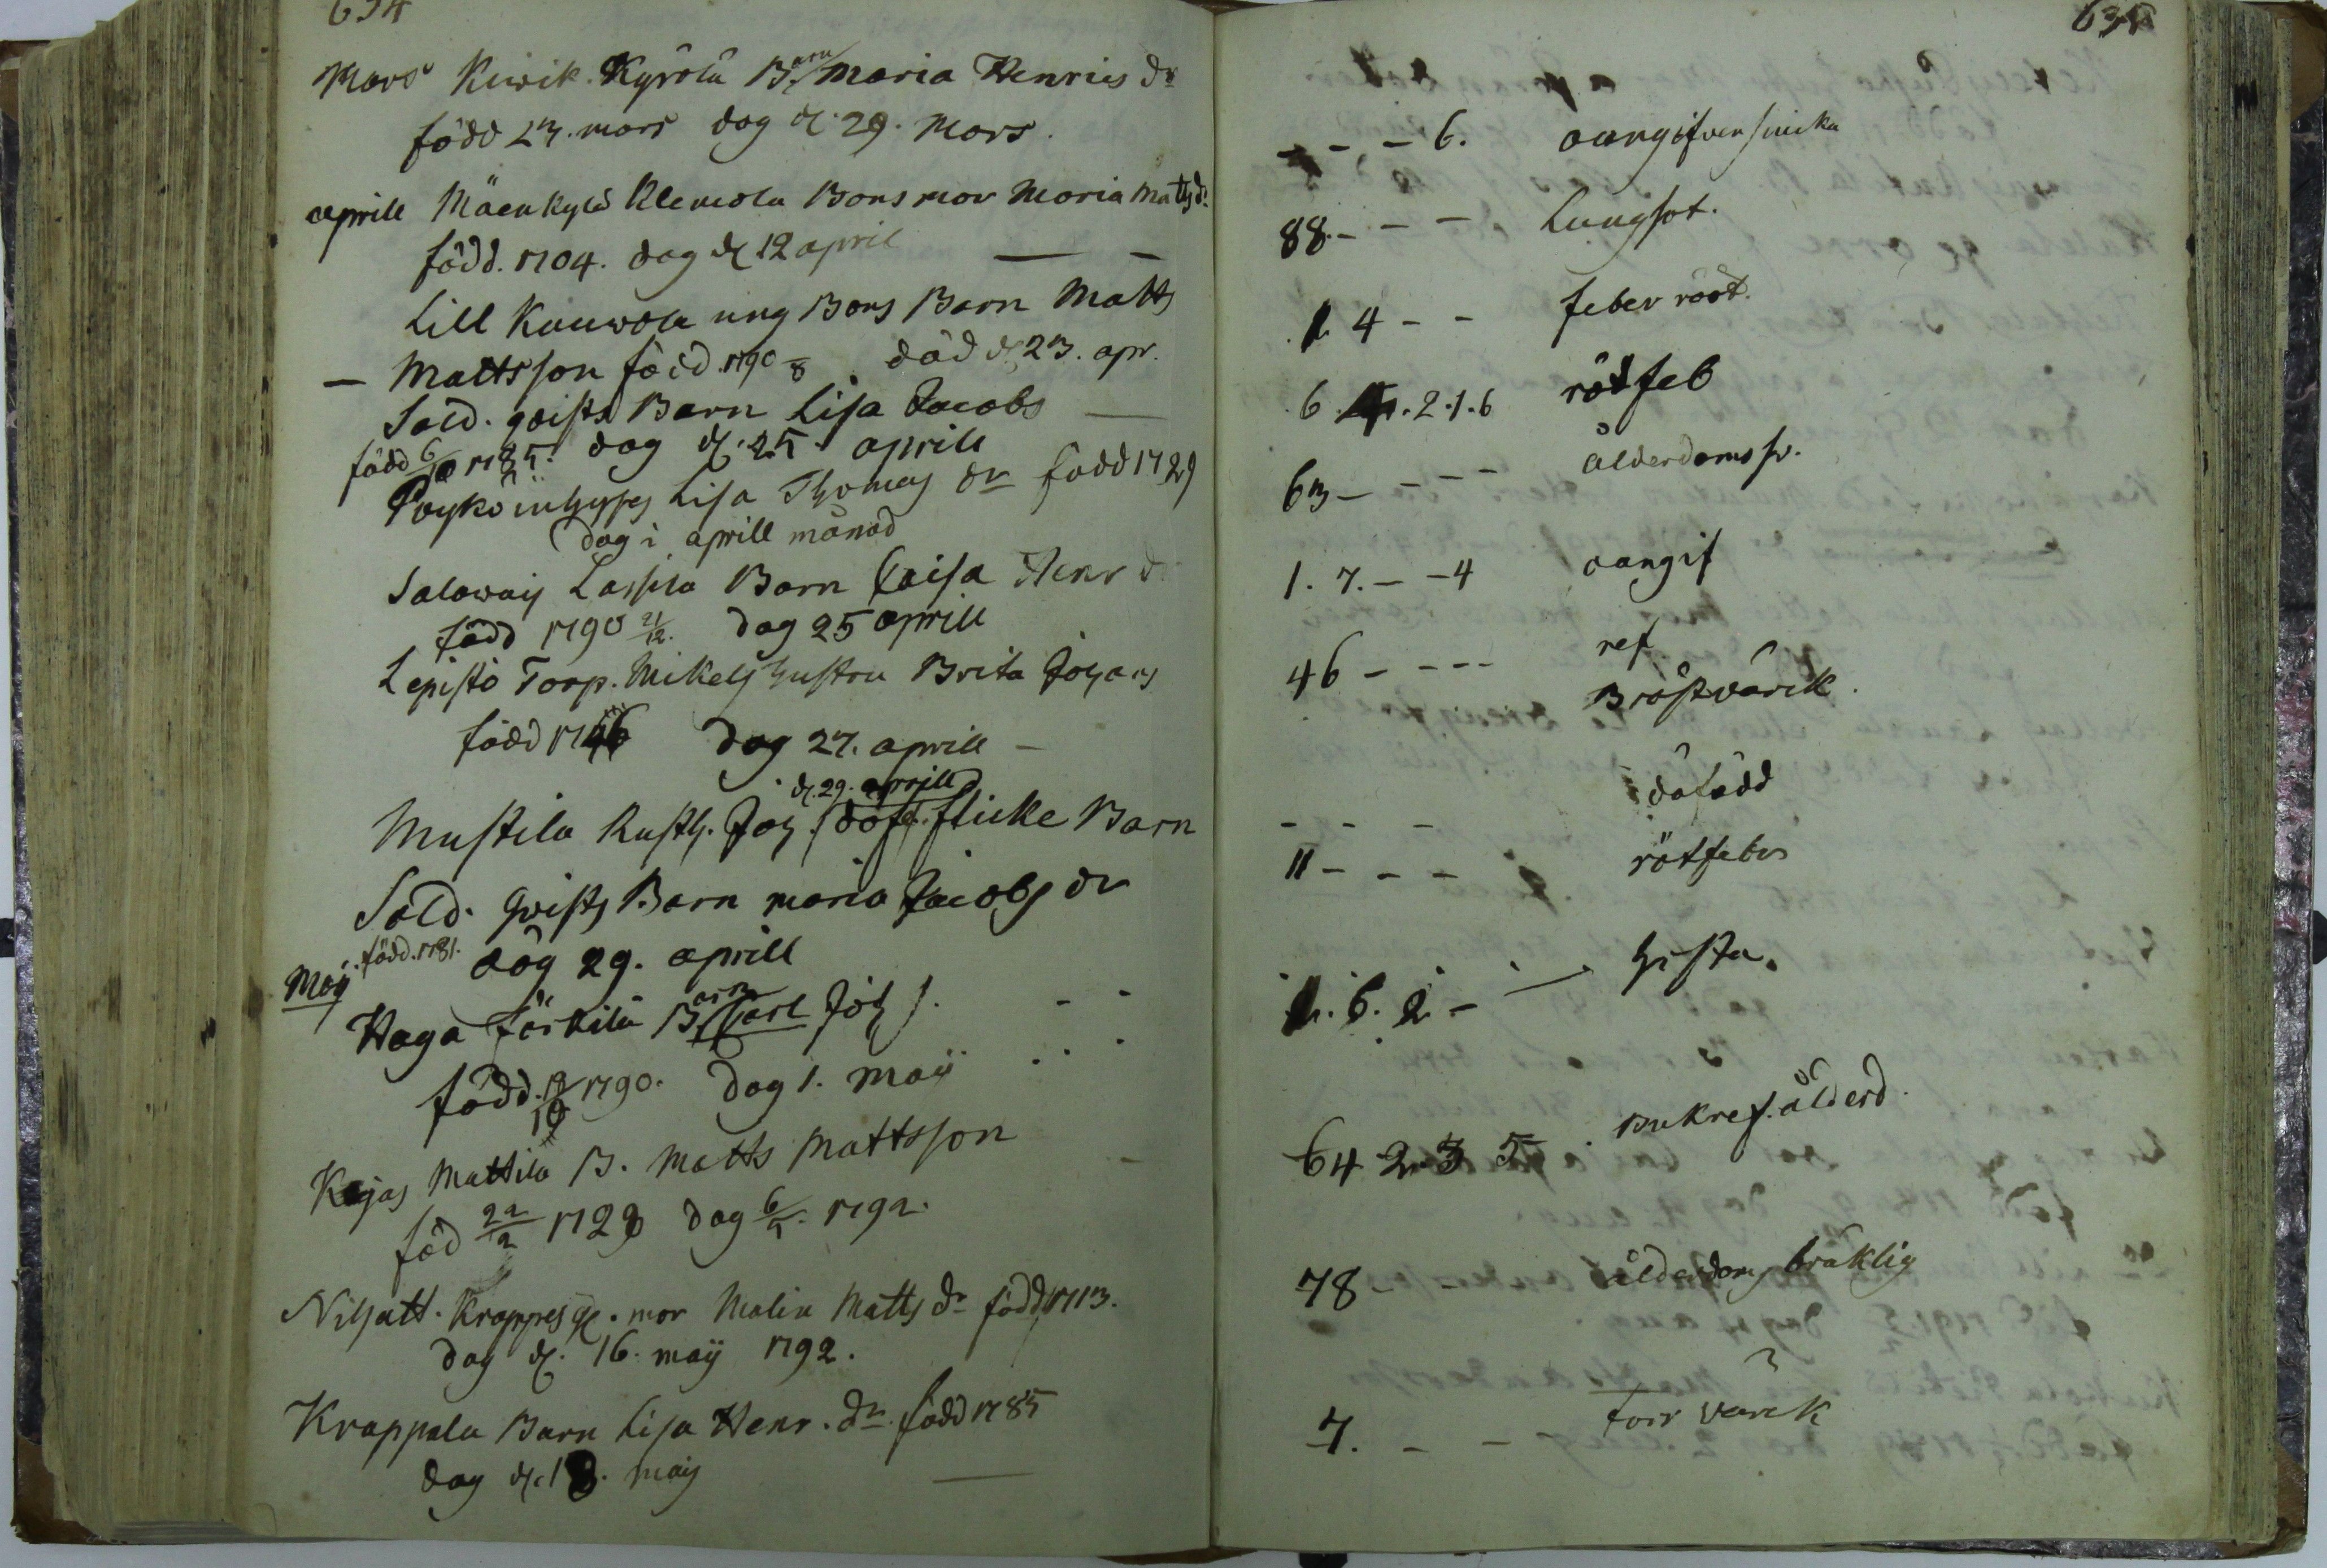 634
Mars Kiwik. Kyrölä Barn Maria Henrics dr
född 23. mars dog d. 29. Mars.
aprill Mäenkylä Klemola Bonsmor Maria Mattsdr
född. 1704. dog d 12 april
Lill Kauwola ung Bons Barn Matts
Mattsson född. 1790 död d. 23. apr.
Sold. qvists Barn Lisa Jacobs
född 6/10 1785. dog d. 25. aprill
Pöykö inhyses Lisa Thomas dr född 1729
dog i aprill månad
Salowaij Lassila Barn Caisa Henr d
född 1790 21/12. dog 25 aprill
Lepistö Torp. Mikels hustru Brita Johans
född 1746 dog 27. aprill
d. 29. aprill
Mustila Rusth. Joh. döfd. flicke Barn
Sold. qvists Barn maria Jacobs dr
född. 1781. dög 29. aprill
Maij
Haga Törkilä Barn Carl Joh s.
född. 12/10 1790. dog 1. maij
Kojas Mattila B. Matts Mattsson
föd 22/2 1728 dog 6/5. 1792.
Nihatt. Krappes gl. mor Malin Matts dr född 1713.
dog d. 16. maij 1792.
Krappala Barn Lisa Henr. dr. född 1785
dog d. 18. maij
635
- - - 6. oangifven siuka
88. - - - Lungsot.
1 4 - - feber rööt.
6. 2. 1. 6 rötfeb
63 - - - - ålderdoms sv.
1. 7. - - 4 oangif
46 - - - - ref.
Bröstvärck.
- - - döfödd
11 - - - rötfeber
1. 6. 2 - - hosta.
64 2 3 5 Bukref. ålderd.
78 - - ålderdoms bräklig
7. - - torr värck